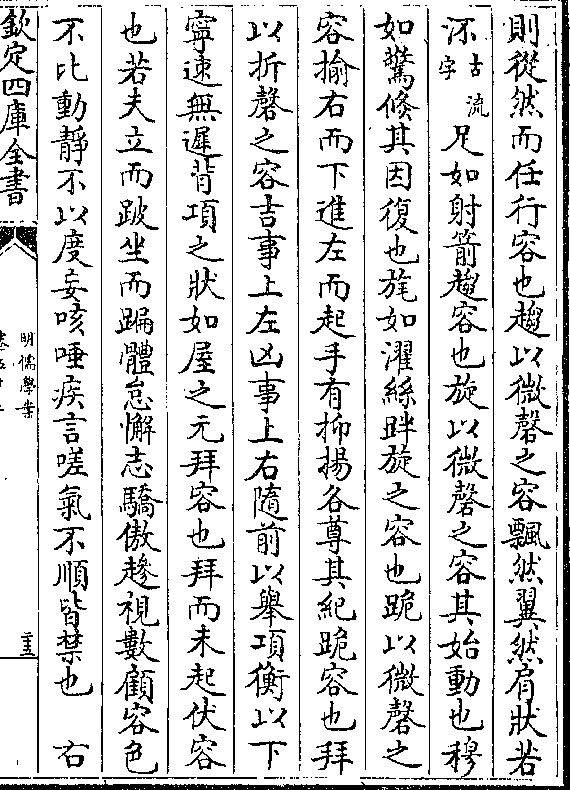 則從然而任行容也趨以微磬之容飄然翼然肩狀若
㳅古流字足如射箭趨容也旋以微磬之容其始動也穆
如驚倏其因復也旄如濯絲跘旋之容也跪以微磬之
容揄右而下進左而起手有抑揚各尊其紀跪容也拜
以折磬之容吉事上左凶事上右隨前以舉項衡以下
寧速無遲背項之狀如屋之元拜容也拜而未起伏容
也若夫立而跛坐而蹁體怠懈志驕傲趮視數顧容色
不比動靜不以度妄咳唾疾言嗟氣不順皆禁也　右
欽定四庫全書
明儒學案